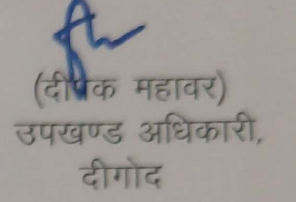 (दीपक महावर)
उपखण्ड अधिकारी,
दीगोद